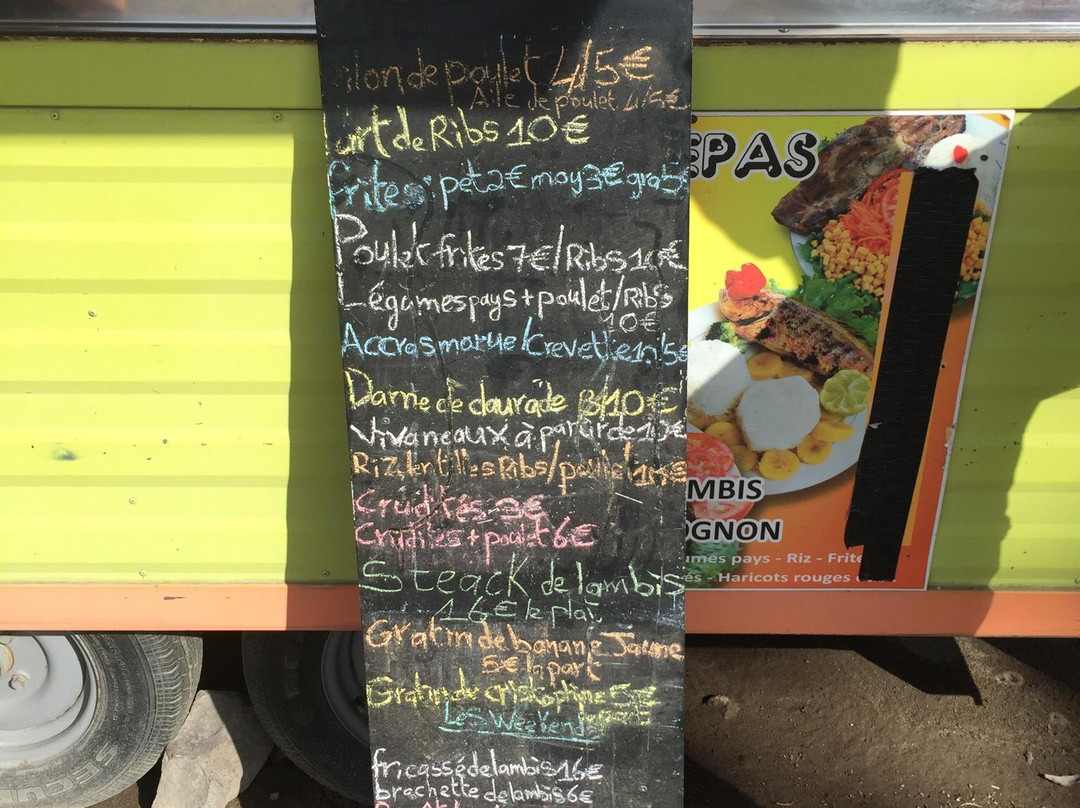 ilon de poulet 4/5€
Aile de poulet 4/5€
art de Ribs 10€
frites: pet 2€ moy 3€
Poulet frites 7€/Ribs 10€
Légumes pays + poulet/Ribs
10€
Accras morue/Crevette
Darne de daurade 8/10€
Vivaneaux à partir de 10€
Riz, lentilles Ribs/poulet 10€
Crudités 3€
Crudités + poulet 6€
Steack de lambis
16€ le plat
Gratin de banane Jaune
5€ la part
Gratin de christophine 5€
Les Weekend
fricassé de lambis 16€
brachette de lambis 6€
ÉPAS
MBIS
OGNON
umes pays - Riz - Frite
és - Haricots rouges